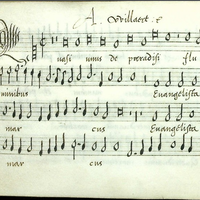 A. Willaert.
Quasi unus de paradisi flu
minibus Evangelista
mar cus Evangelista
mar cus